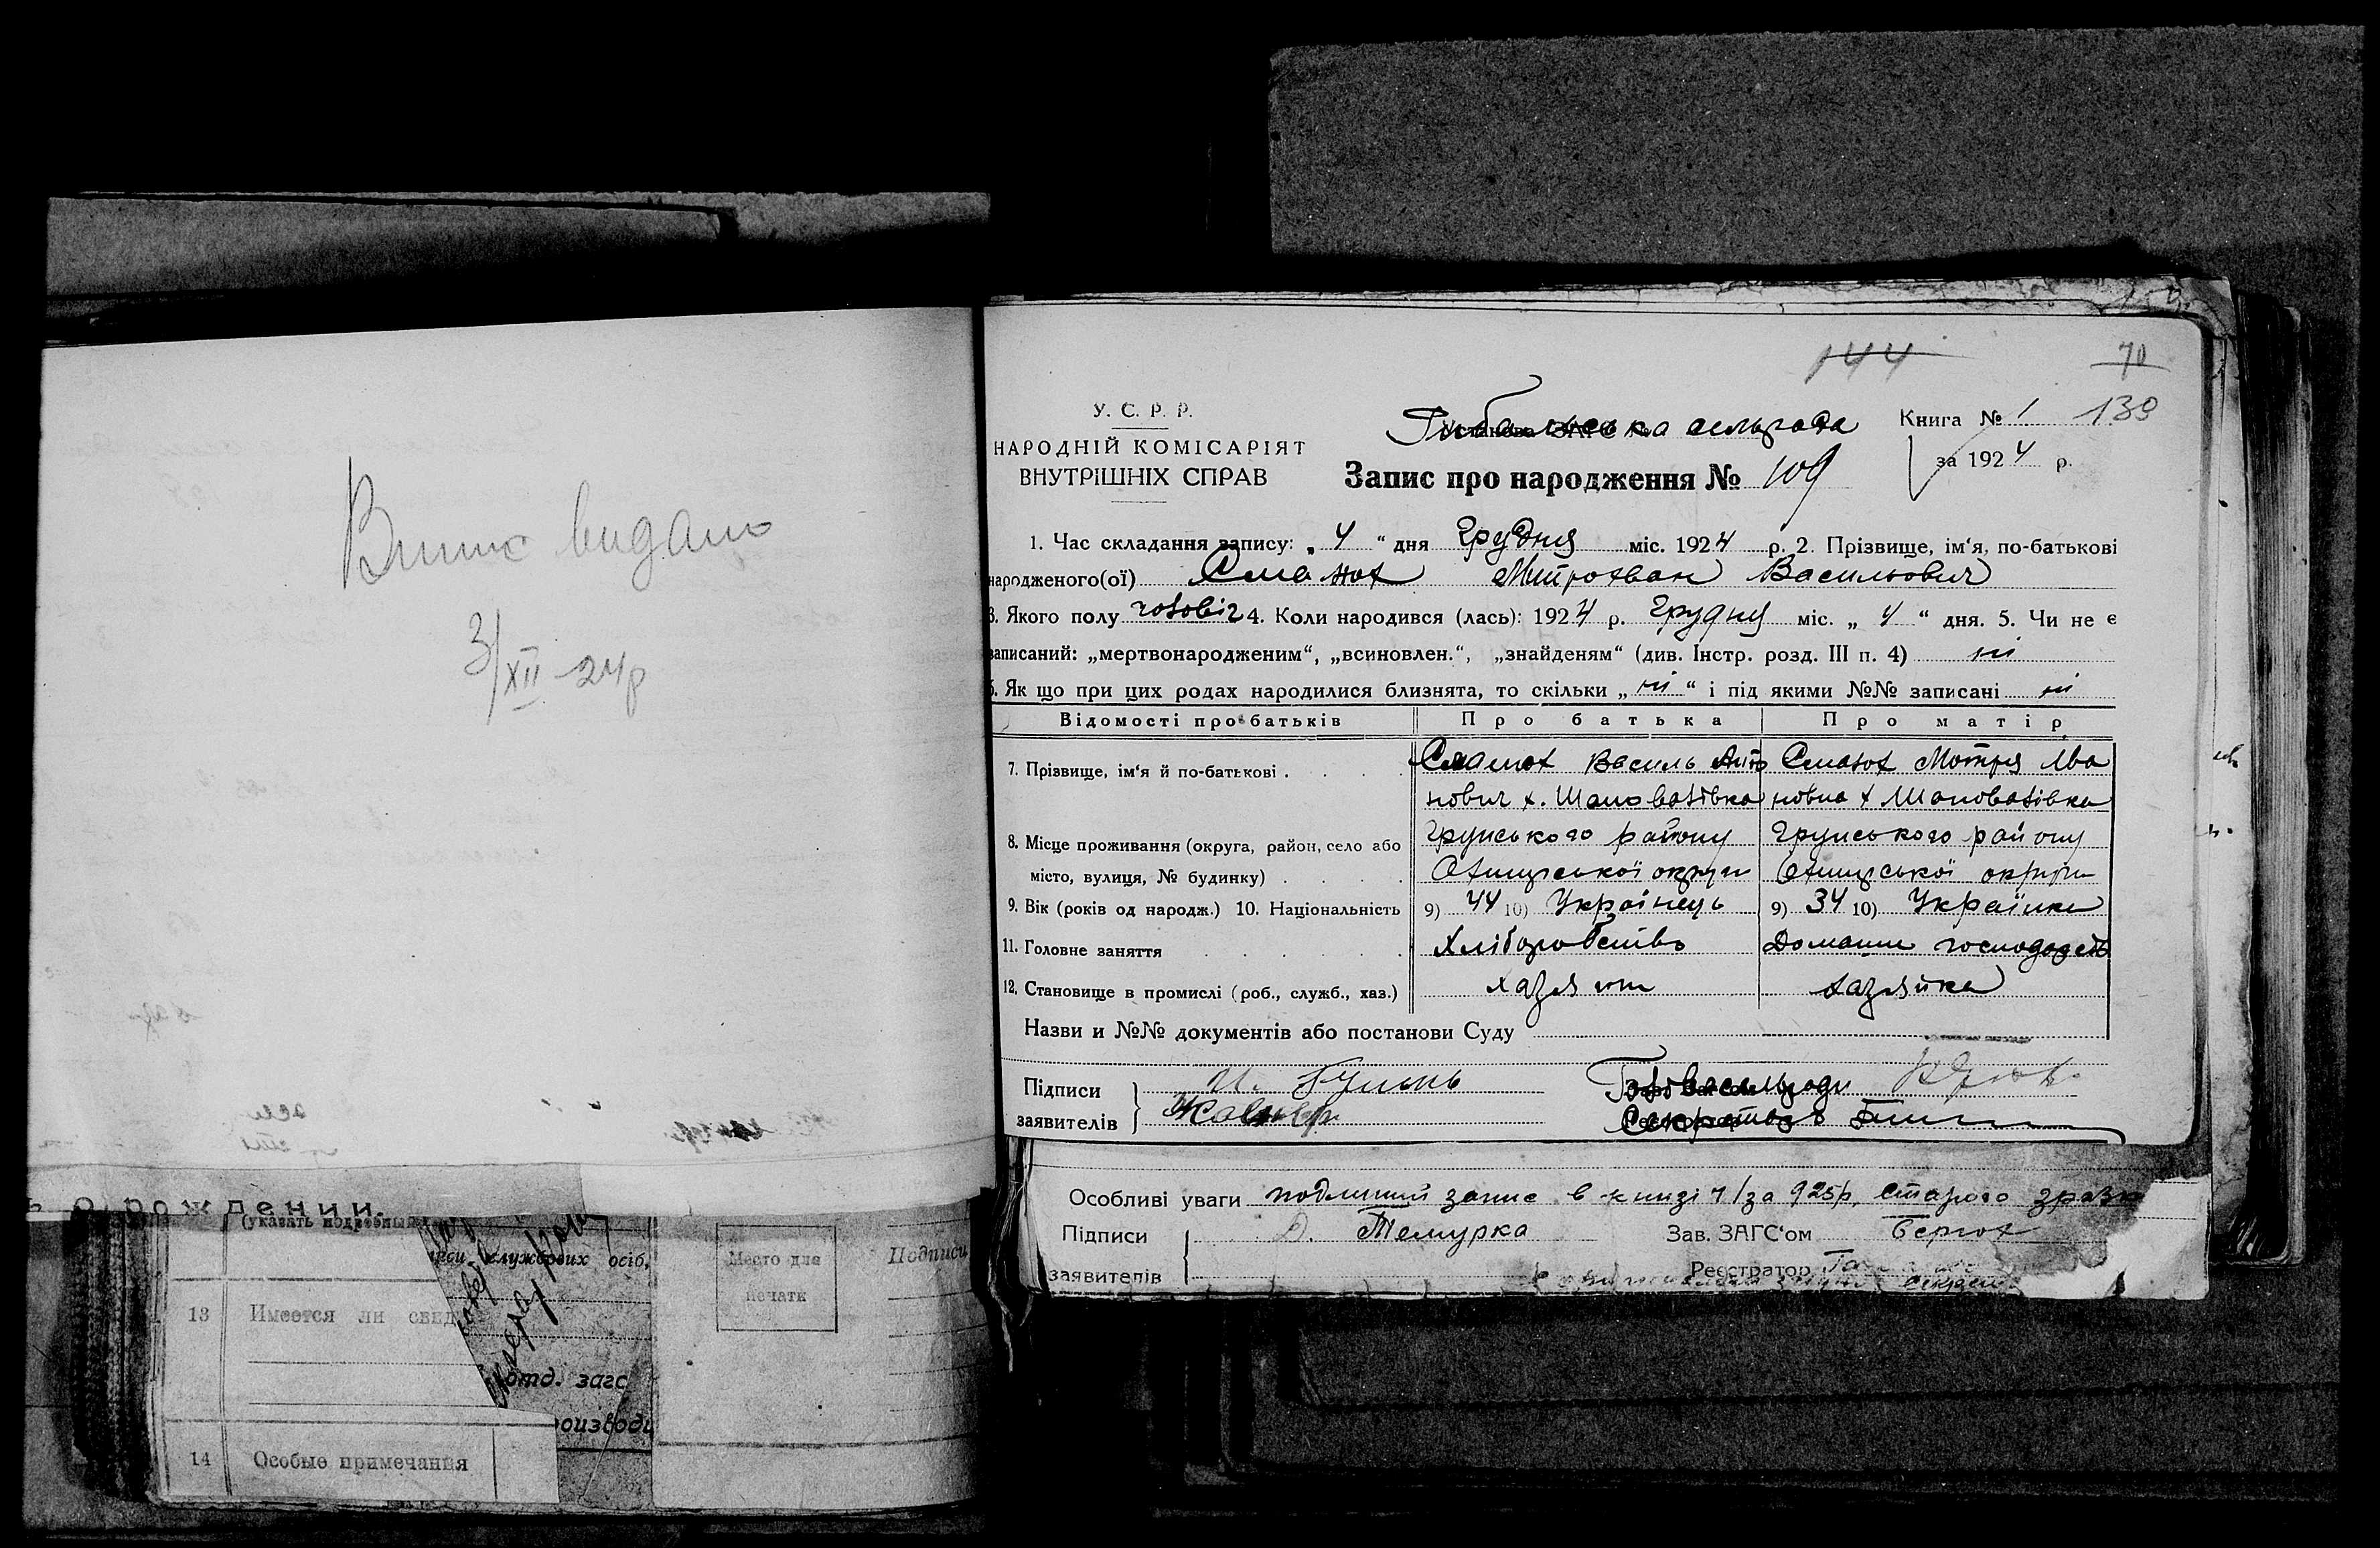 Випис видано
3/XII 24р
ь о рождении.
(указать подробный
службових осіб,
13 Имеется ли свид
отд. загс
14 Особые примечания
Место для печати
Подписи
144
70
139
У. С. Р. Р.
НАРОДНІЙ КОМІСАРІЯТ
ВНУТРІШНІХ СПРАВ
Рибальська сельрада
Книга № 1
за 1924 р.
Запис про народження № 109
1. Час складання запису: „ 4 “ дня Грудня міс. 1924 р. 2. Прізвище, ім‘я, по-батькові
народженого(ої) Митрохван Васильович
3. Якого полу чоловіч 4. Коли народився (лась): 1924 р. Грудня міс. „ 4 “ дня. 5. Чи не є
записаний: „мертвонародженим“, „всиновлен.“, „знайденям“ (див. Інстр. розд. III п. 4) ні
6. Як що при цих родах народилися близнята, то скільки „ ні “ і під якими №№ записані ні
Відомості про батьків Про батька Про матір
7. Прізвище, ім‘я й по-батькові . Василь Анто Мотря Ива
нович х. Шаповалівка новна х Шаповалівка
8. Місце проживання (округа, район, село або Грунського району Грунського району
місто, вулиця, № будинку) . Охтирської округи Охтирської округи
9. Вік (років од народж.) 10. Національність 9) 44 10) Українець 9) 34 10) Українка
11. Головне заняття Хліборобство Домашнє господарств
12. Становище в промислі (роб., служб., хаз.) хазяїн хазяйка
Назви и №№ документів або постанови Суду
Підписи И. Голова сельради
заявителів Секретарь
Особливі уваги подлиний запис в книзі 1/за 925р. старого зразк
Підписи Д. Темурка Зав. ЗАГС‘ом
заявителів Реєстратор